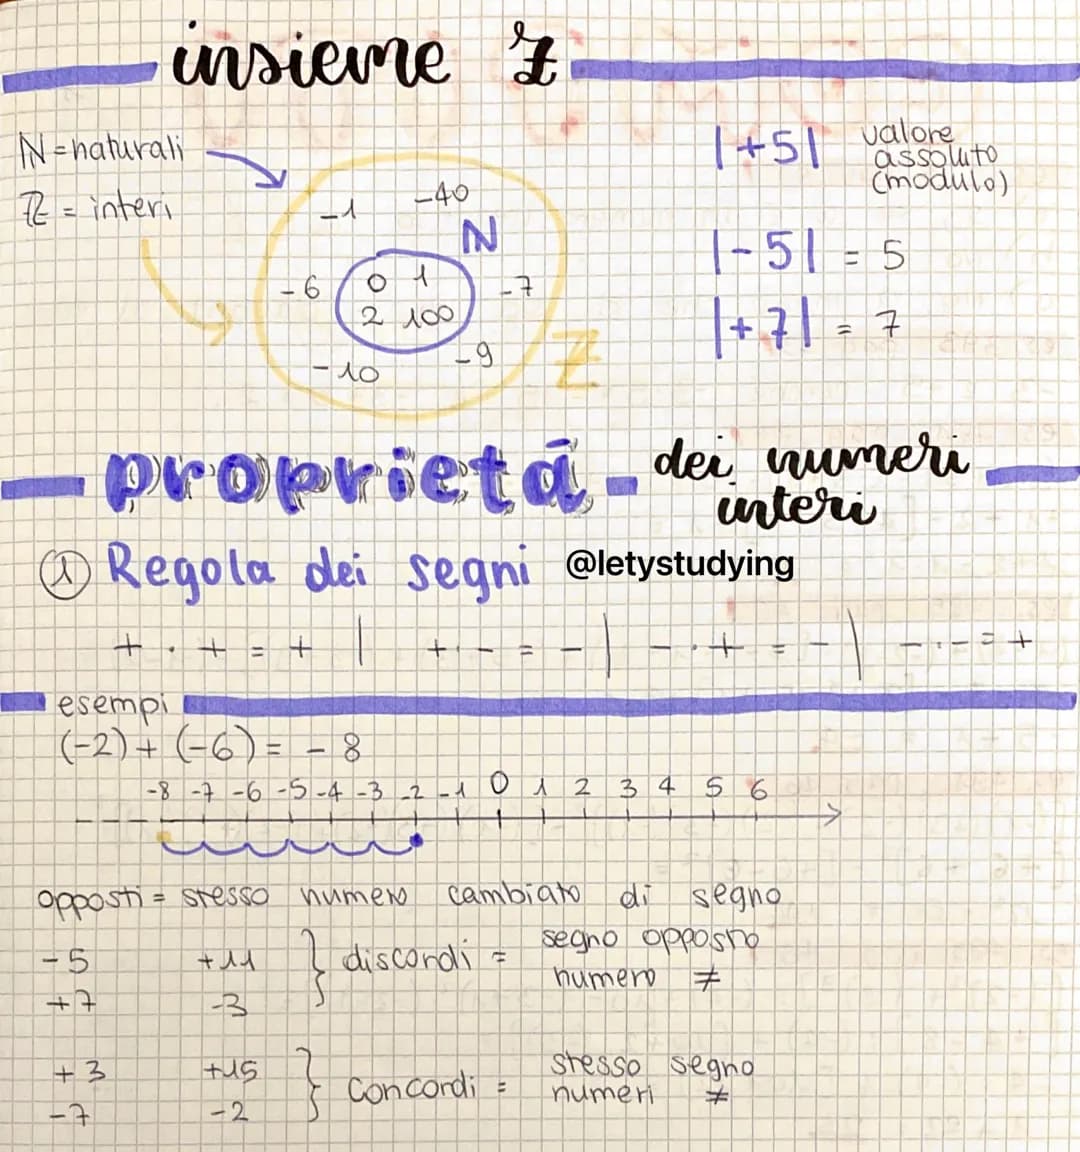 insieme ℤ
ℕ = naturali
ℤ = interi
-1 -40
ℕ
-6 0 1 -7
2 100
-10 -9
ℤ
|+5| valore
assoluto
(modulo)
|-5| = 5
|+7| = 7
proprietà dei numeri
interi
① Regola dei segni @letystudying
+ · + = + | + · - = - | - · + = - | - · - = +
esempi
(-2) + (-6) = - 8
-8 -7 -6 -5 -4 -3 -2 -1 0 1 2 3 4 5 6
opposti = stesso numero cambiato di segno
-5 +11 } discordi = segno opposto
+7 -3 numero ≠
+3 +15 } concordi = stesso segno
-7 -2 numeri ≠